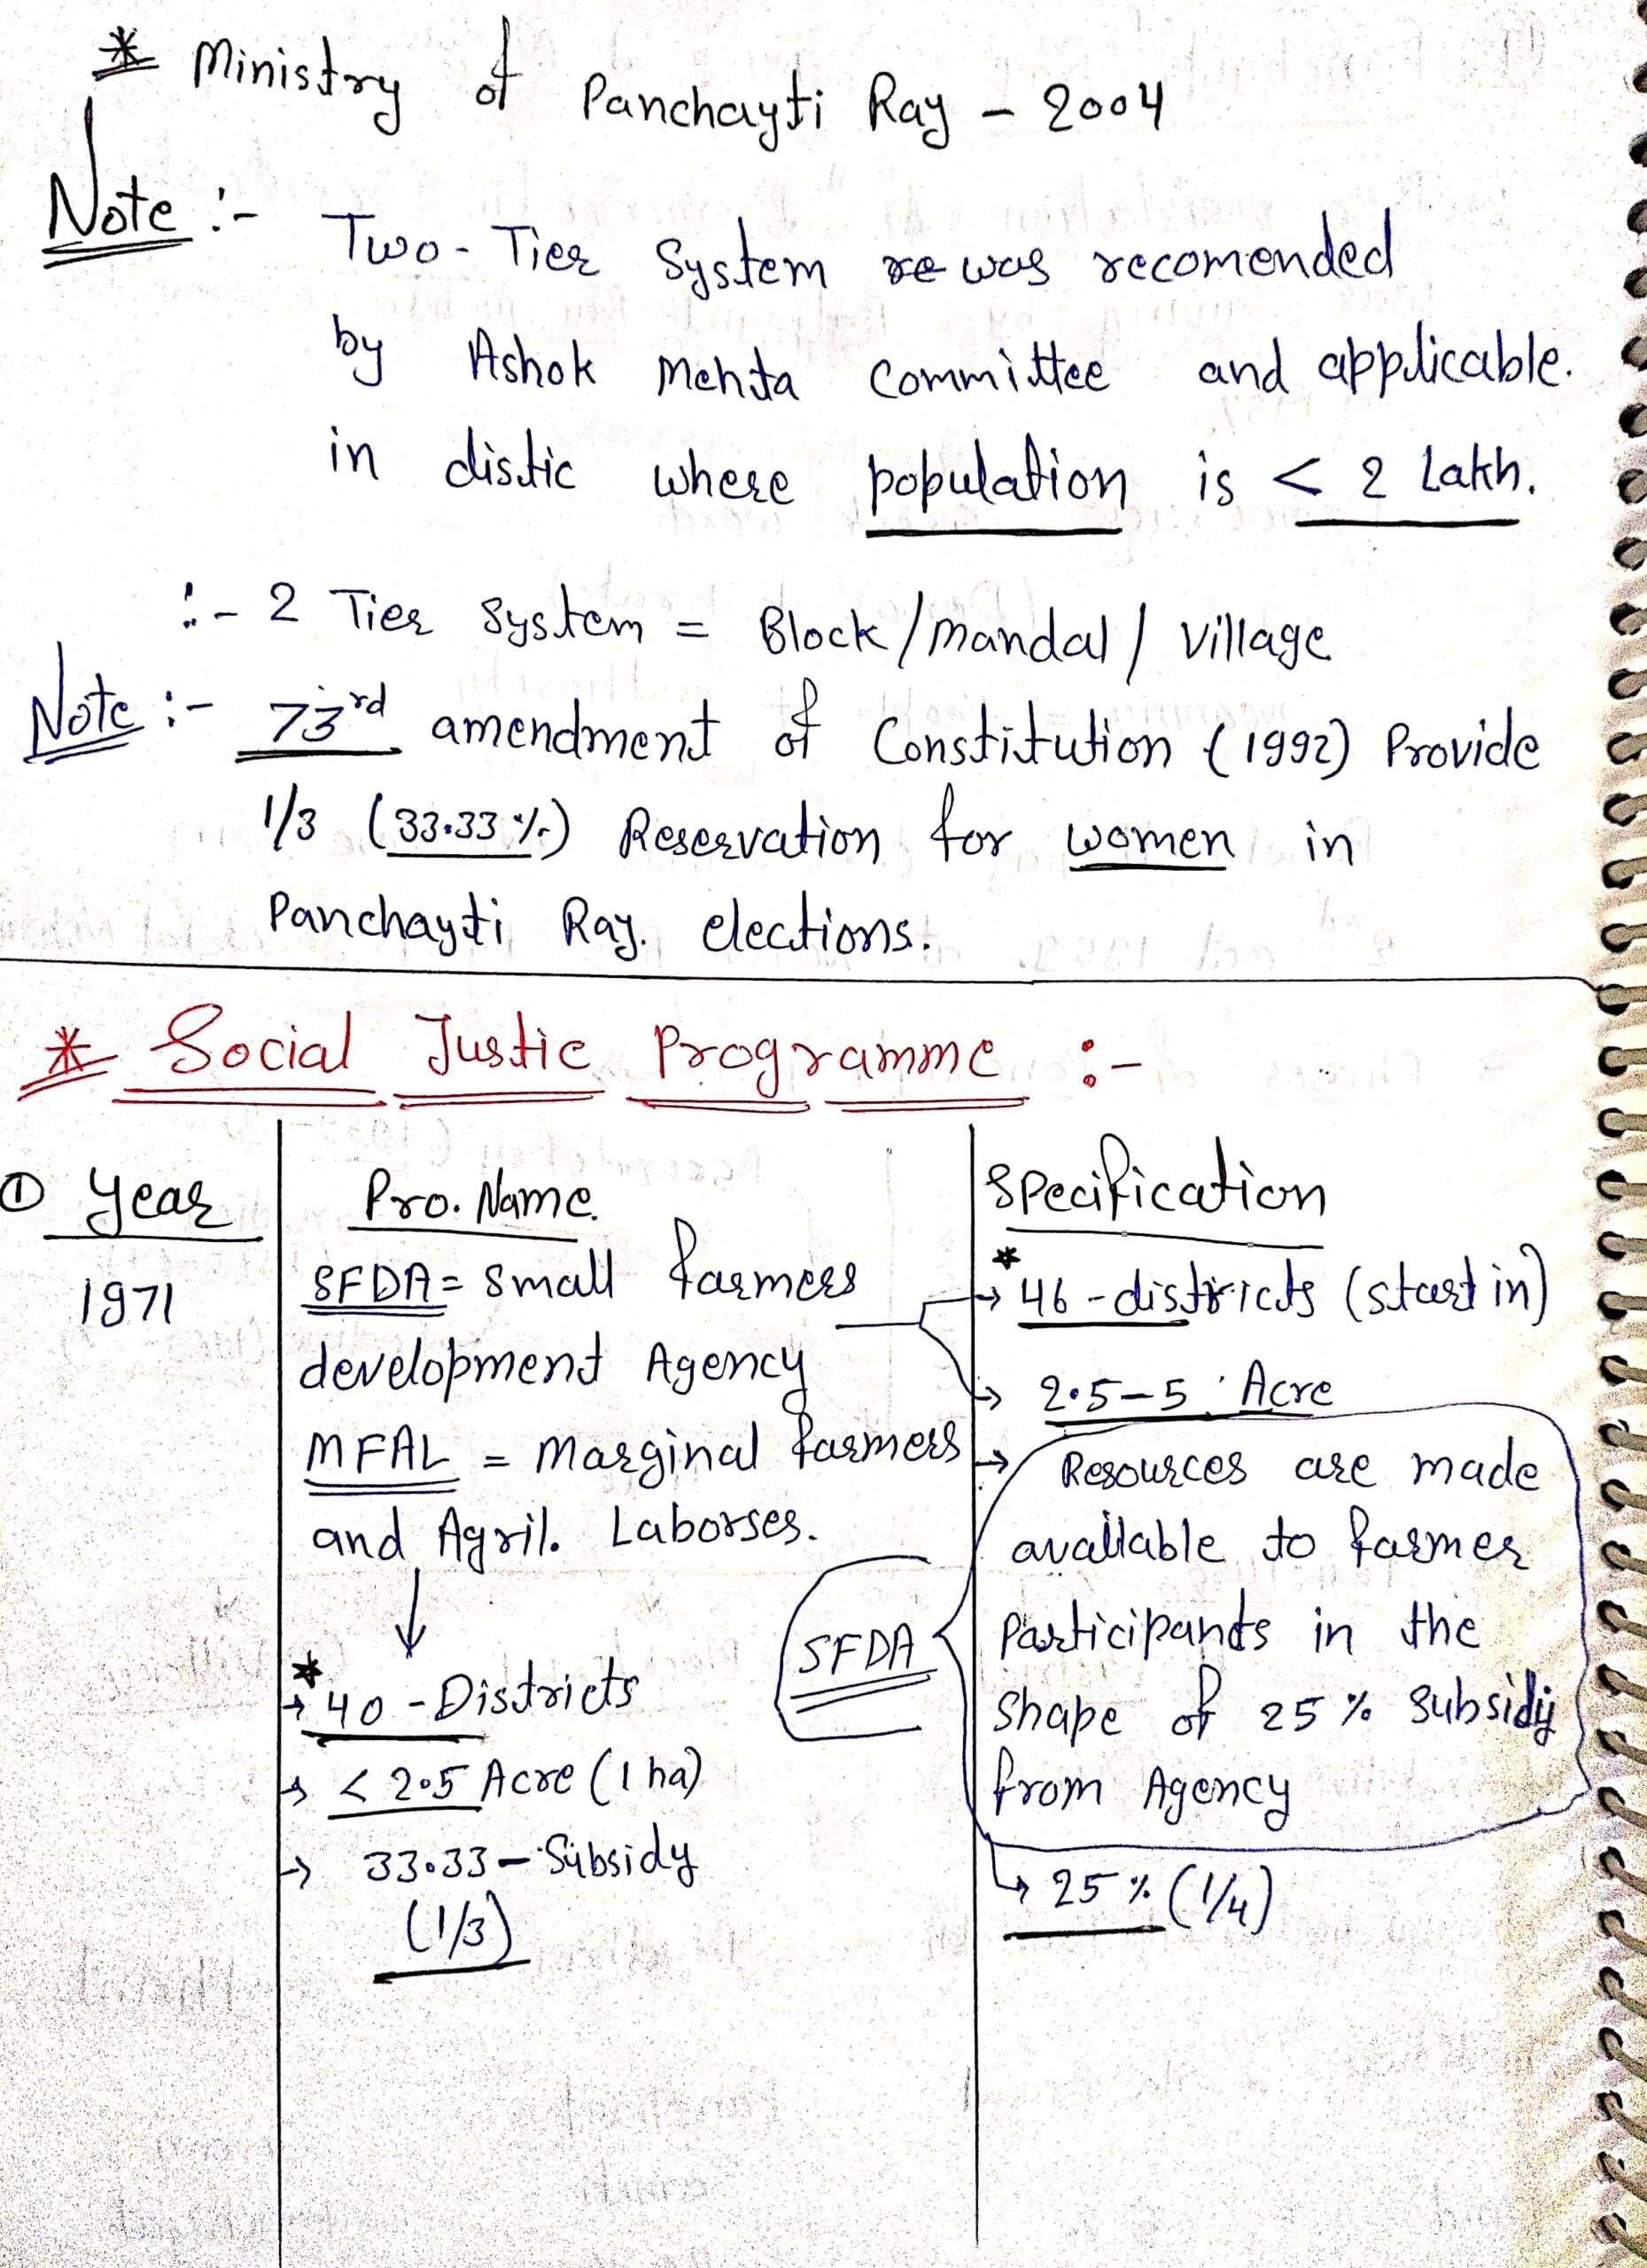 * Ministry of Panchayti Ray - 2004
Note :- Two-Tier System re was recomended
by Ashok Mehta Committee and applicable.
in distic where population is < 2 Lakh.
:- 2 Tier System = Block/Mandal/Village
Note :- 73rd amendment of Constitution (1992) Provide
1/3 (33.33 %) Reservation for women in
Panchayti Ray. elections.
* Social Justic Programme :-
① Year
1971
Pro. Name.
SFDA = Small farmers
development Agency
MFAL = Marginal farmers
and Agril. Laborses.
↓
* → 40 - Districts
→ < 2.5 Acre (1 ha)
→ 33.33 - Subsidy
(1/3)
Specification
* → 46 - districts (start in)
→ 2.5-5 Acre
→ Resources are made
available to farmer
Participants in the
SFDA
Shape of 25 % Subsidy
from Agency
↳ 25 % (1/4)